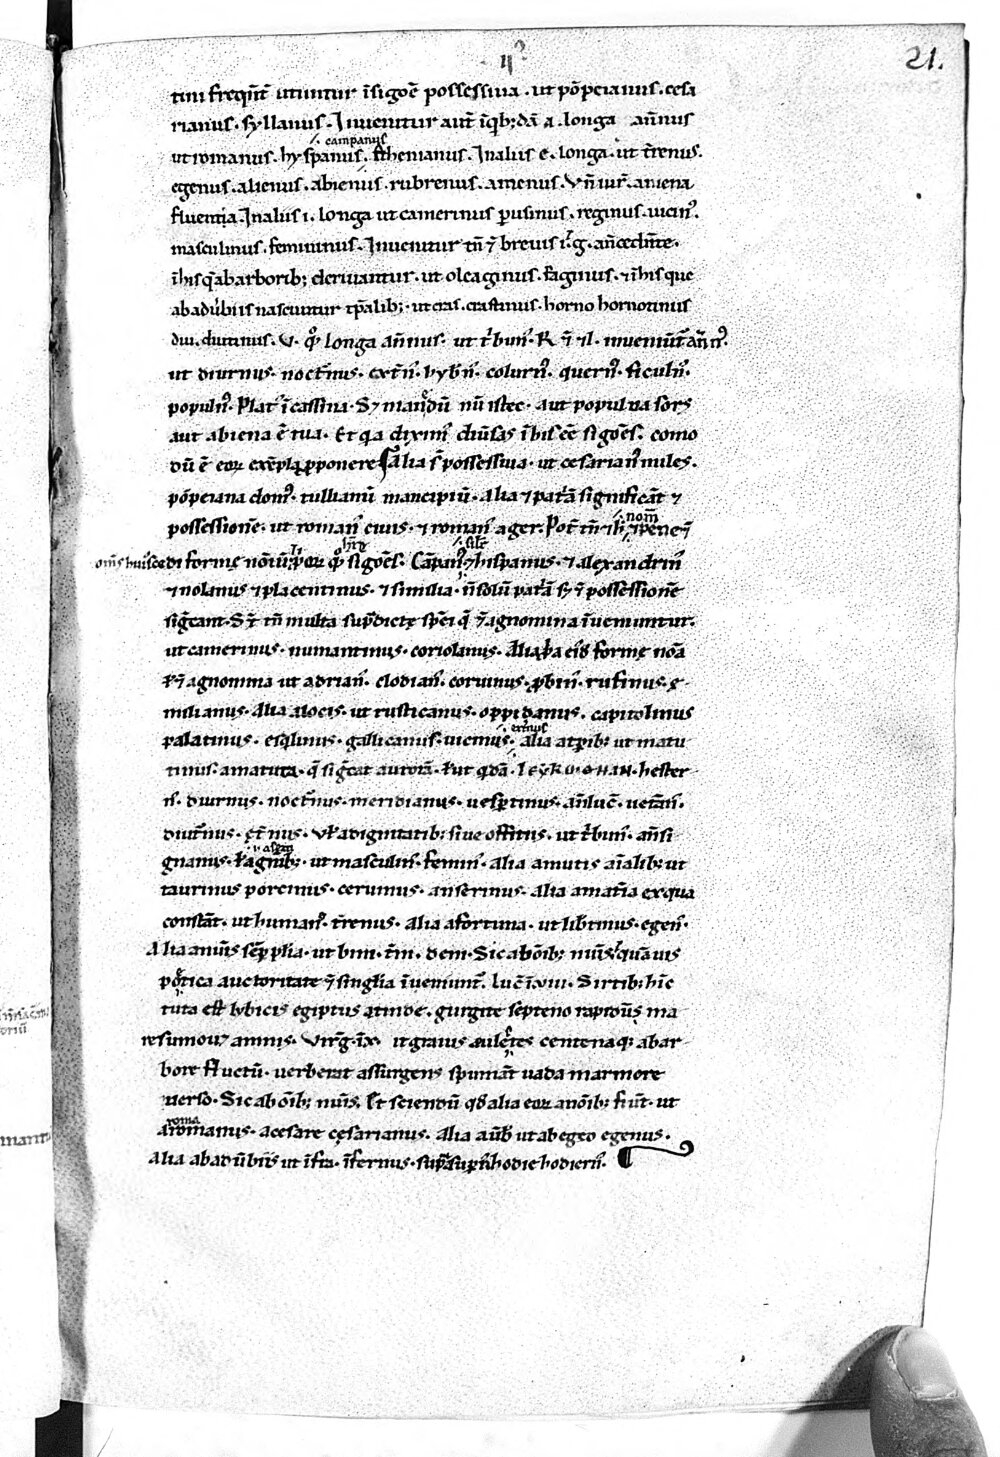 21.
tini freq̄nt̄ utuntur ī sigōē possessiua . ut pōpeianus . cesa
rianus . syllanus . Inuenitur aut̄ ī q̄b; dā a . longa añnus
campanus
ut romanus . hyspanus . athenianus . In alius e . longa . ut t̄renus .
egenus . alienus . abienus . rubrenus . amenus . Vñ iur̄ . amena
fluentia . In alius i . longa ut camerinus pusinus . reginus . uicin⁹ .
masculinus . femininus . Inuenitur tñ ⁊ breuis i . g . añcedn̄te .
ī his q̄ ab arborib; deriuantur . ut oleaginus . faginus . ⁊ ī his que
ab adūbiis nascuntur tp̄alib; . ut cras . crastinus . horno hornotinus
diu . diutinus . V . q̊ longa añnus . ut t̄buñ . R ⁊ ł . inueniūt̄ añ n⁹ .
ut diurnus . noct̄nus . ext̄ñ . hyb̄ñ . colurn⁹ . quern⁹ . ficuln⁹ .
populn⁹ . Plat̄ ī cassina . S; mandū nū istec . aut populna sors
aut abiena ē tua . Et q̄a diximꝰ diūsas ī his eē sigōēs . como
dū ē eoꝝ exēpla p̄ponere Alia s̄ possessiua . ut cesarian⁹ miles .
pōpeiana dom⁹ . tullianū mancipiū . alia ⁊ pat̄ā significāt ⁊
nom̄
possessione . ut romañ ciuis . ⁊ romañ ager . Pot̄ tñ
omīs huiꝰcedi formę nōiū
sigōēs . Cāpan⁹ ⁊ hispanus . ⁊ alexandriñ
⁊ nolanus ⁊ placentinus . ⁊ similia . ñ solū pat̄ā s; ⁊ possessionē
sigc̄ant . S; tñ multa sup̄dictę sp̄ei q̄ ⁊ agnomina īueniuntur .
ut camerinus . numantinus . coriolanus . Alia eiđ formę nōa
⁊ agnomina ut adriañ . clodiañ . coruinus . p̄biñ . rufinus . ę
milianus . Alia a locis . ut rusticanus . oppidanus . capitolinus
palatinus . esq̄linus . gallicanus . uicinus . alia a tp̄rib; ut matu
tinus . a matuta . q̄ sigc̄at aurorā . ł ut q̄dā . hester
ñ . diurnus . noct̄nus . meridianus . uesp̄tinus . añluc̄ . uet̄añ .
diut̄nus . ęt̄nus . Vł a dignitatib; siue offitiis . ut t̄buñ . añsi
gnanus . ł a gñib; . ut masculiñ . femiñ . alia a mutis aīalib; ut
taurinus porcinus . ceruinus . anserinus . alia a mat̄ia ex qua
constāt . ut human⁹ . t̄renus . Alia a fortuna . ut lib̄tinus . egeñ .
Alia a nuīs sēp plia . ut bini . t̄ni . deni . Sic ab ōīb; nuīs . quāuis
poetica auctoritate ⁊ singl̄ia īueniunt̄ . Luc̄ ī . viii . Sirtib; hīc
tuta est lybicis egiptus at inde . gurgite septeno rapidus ma
re summouꝫ amnis . Virḡ . ī x . it grauis aulestes centenaq; abar
bore fluctū . uerberat assurgens spumāt uada marmore
uerso . Sic ab ōīb; nuīs . Et sciendū qđ alia eoꝝ a nōīb; fiūt . ut
roma
a romanus . a cesare cęsarianus . Alia a ūb̄ ut ab egeo egenus .
Alia ab adūbiis ut īfra . īfernus . sup̄ supn⁹ hodie hodierñ .